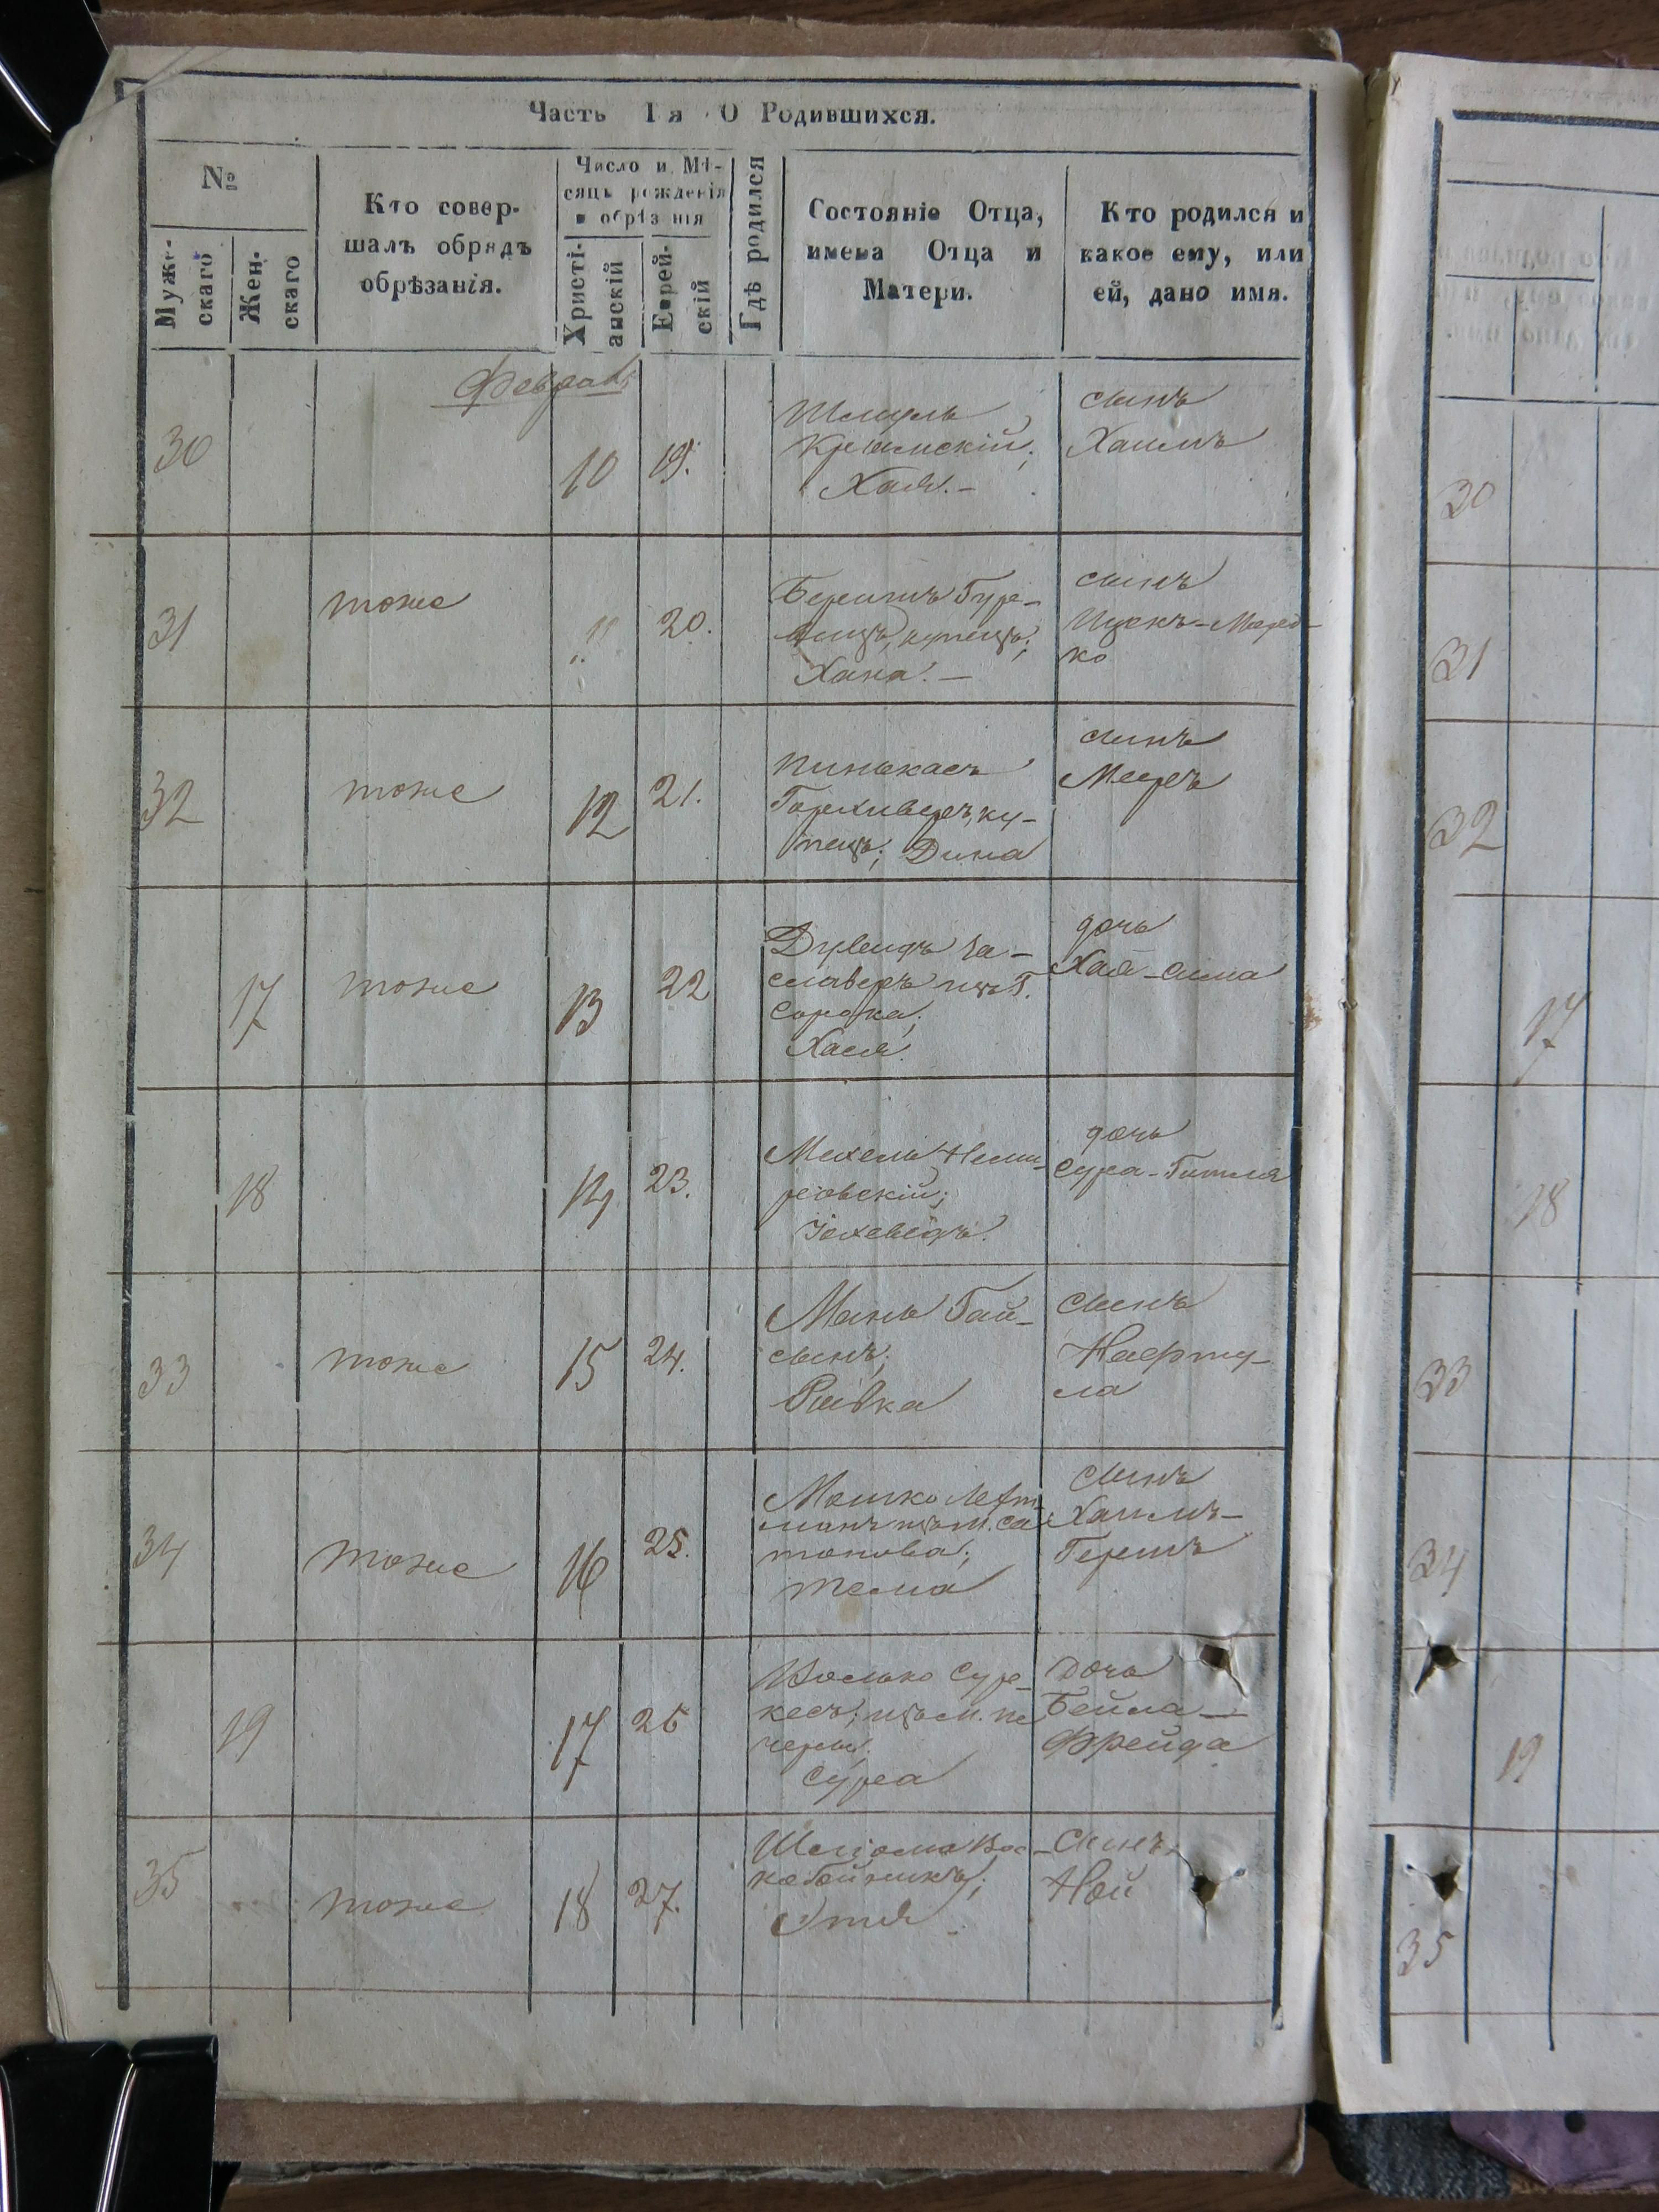 Часть 1я О Родившихся.
№
Муже-
скаго
Жен-
скаго
Кто совер-
шалъ обрядъ
обрѣзанія.
Число и Мѣ-
сяцъ рожденія
и обрѣзанія
Христі-
анскій
Еврей-
скій
Гдѣ родился
Состояніе Отца,
имена Отца и
Матери.
Кто родился и
какое ему, или
ей, дано имя.
Февраль
30
10
19.
Шмуль
Крымскій;
Хая. –
сынъ
Хаимъ
31
тоже
11
20.
Беришъ Гуре-
вицъ, купецъ;
Хана. –
сынъ
Ицекъ-Мордъ-
ко
32
тоже
12
21.
Пинькасъ
ку-
пецъ; Дина
сынъ
Мееръ
17
тоже
13
22
За-
славеръ
Сорока;
Хася.
дочь
Хая-Сима
18
14
23.
Мехель Неми-
ровскій;
Іохеведъ.
дочь
Сура-Гитля
33
тоже
15
24.
Мань Гай-
сынъ;
Ривка
сынъ
Нафту-
ла
34
тоже
16
25.
Мошко
са
танова;
тема
сынъ
Хаимъ-
Гершъ
19
17
26
Волько Сур-
кесъ; м. пе
черы;
Сура
дочь
Бейла-
Фрейда
35
тоже
18
27.
Шлiома Вос-
кобойникъ;
Этя
Сынъ
Ной
30
31
32
17
18
33
34
19
35